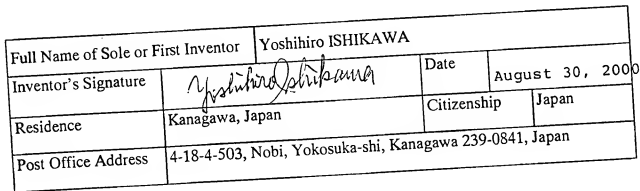 Full Name of Sole or First Inventor Yoshihiro ISHIKAWA
Inventor's Signature Yoshihiro Ishikawa Date August 30, 2000
Residence Kanagawa, Japan Citizenship Japan
Post Office Address 4-18-4-503, Nobi, Yokosuka-shi, Kanagawa 239-0841, Japan